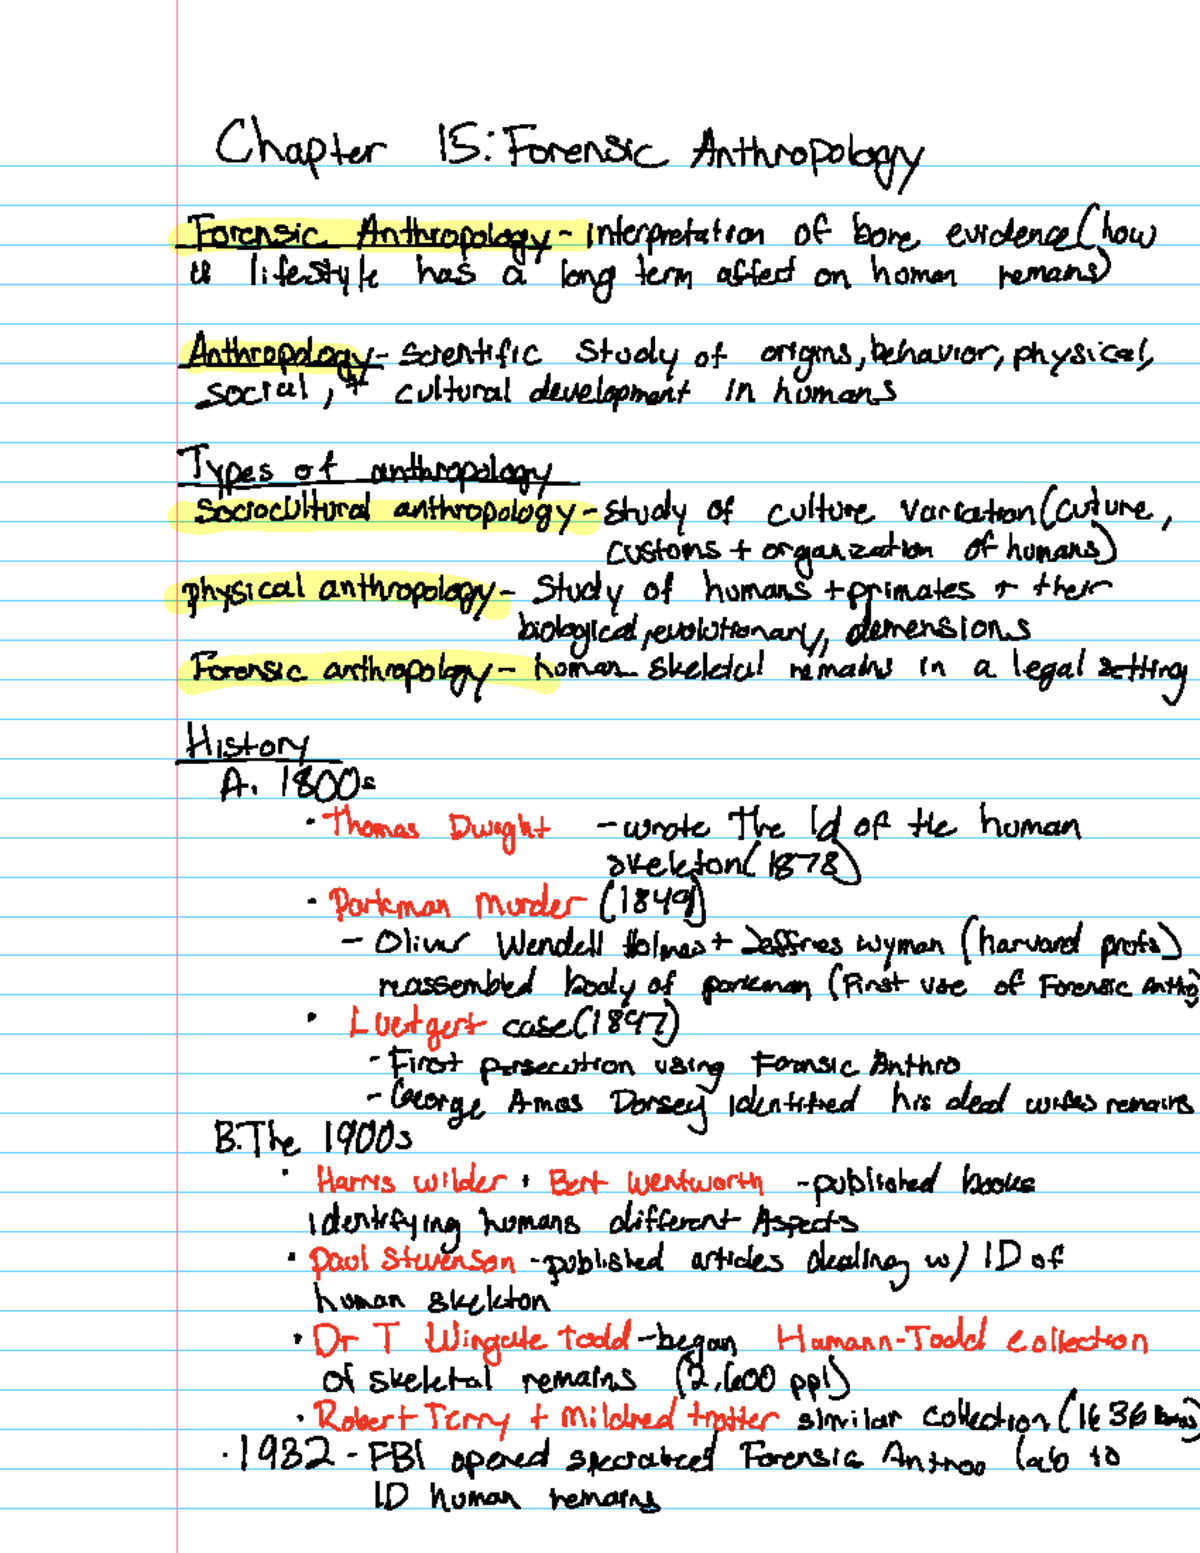 Chapter 15: Forensic Anthropology
Forensic Anthropology - interpretation of bone evidence (how
a lifestyle has a long term affect on human remains)
Anthropology - scientific study of origins, behavior, physical,
social, + cultural development in humans
Types of anthropology
Sociocultural anthropology - study of culture variation (cuture,
customs + organization of humans)
physical anthropology - Study of humans + primates + their
biological, revolutionary, demensions
Forensic anthropology - human skeletal remains in a legal setting
History
A. 1800s
• Thomas Dwight - wrote The Id of the human
skeleton (1878)
• Parkman Murder (1849)
- Oliver Wendell Holmes + Jeffries Wyman (harvard profs)
reassembled body of parkman (First use of Forensic Anthro)
• Luetgert case (1897)
- First persecution using Forensic Anthro
- George Amos Dorsey identified his dead wifes remains
B. The 1900s
• Harris wilder + Bert wentworth - published books
identifying humans different Aspects
• Paul Stevenson - published articles dealing w/ ID of
human skeleton
• Dr T Wingate todd - began Hamann-Todd collection
of skeletal remains (2,600 ppl)
• Robert Terry + Mildred trotter similar collection (1636
• 1932 - FBI opened specialized Forensic Anthro lab to
ID human remains